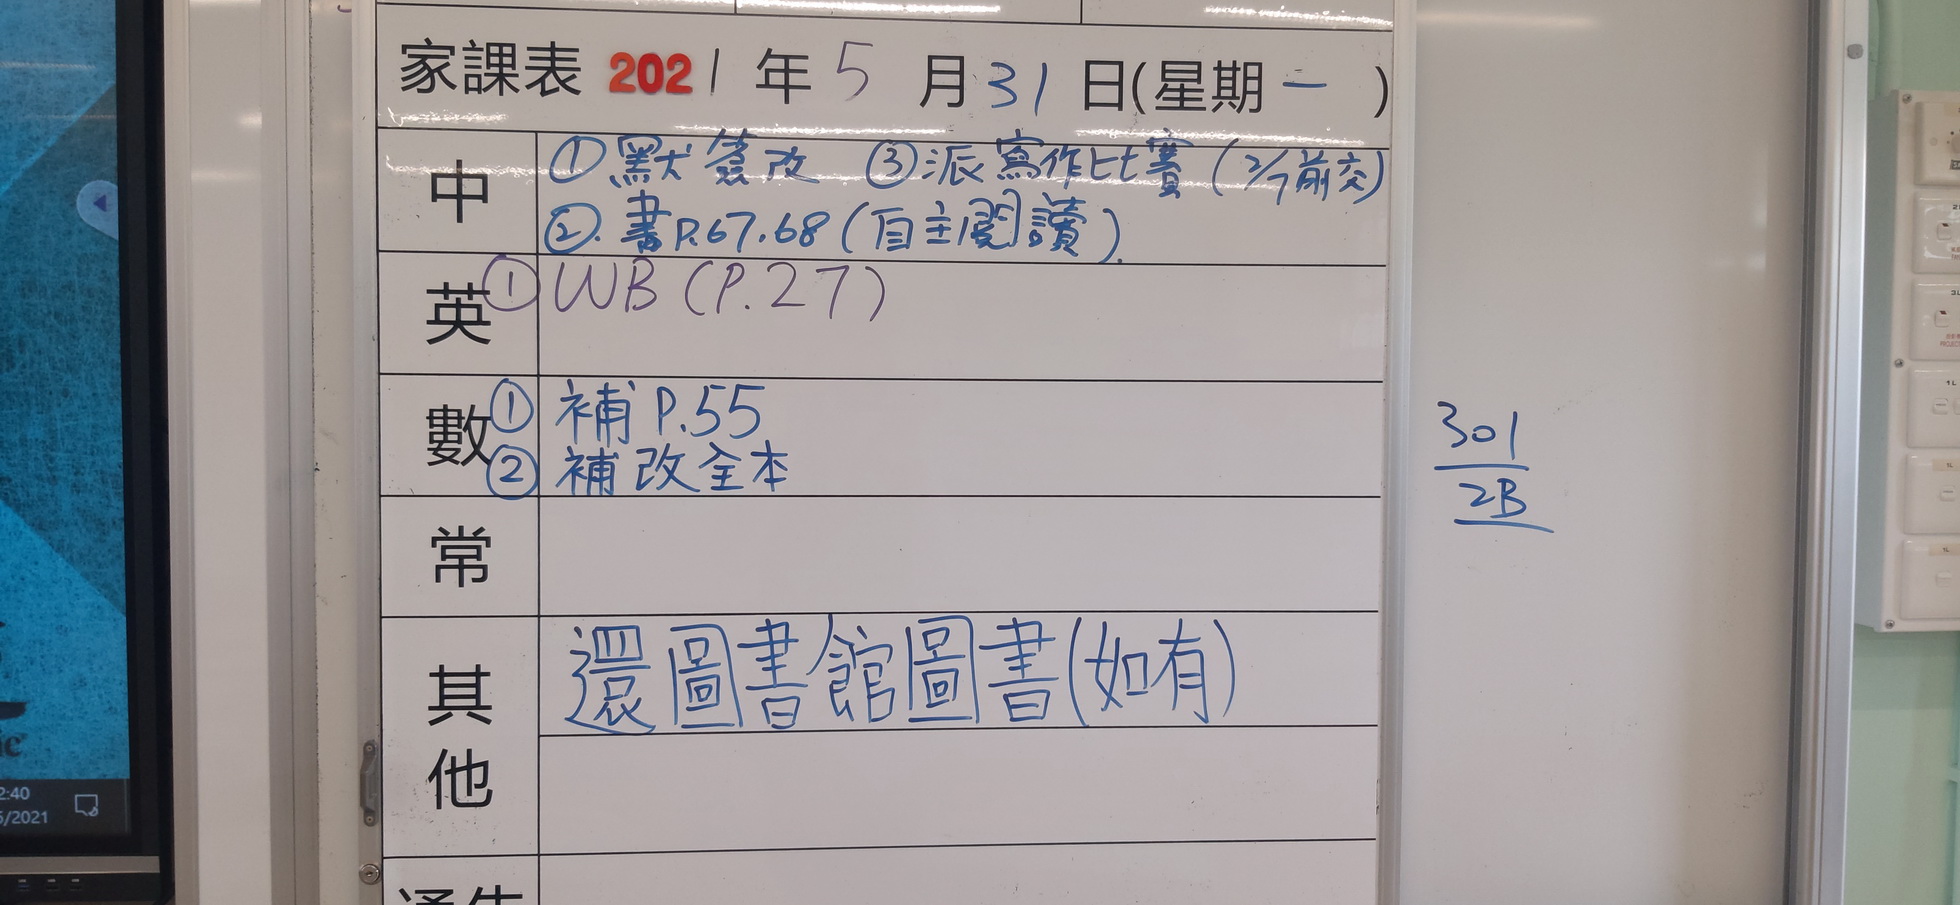 家課表 2021年5月31日(星期一)
中
①默簽改 ③派寫作比賽(2/7前交)
②.書P.67.68(自主閱讀).
英
①WB (P.27)
數
①補P.55
②補改全本
常
其他
還圖書館圖書(如有)
301
2B
2:40
5/2021